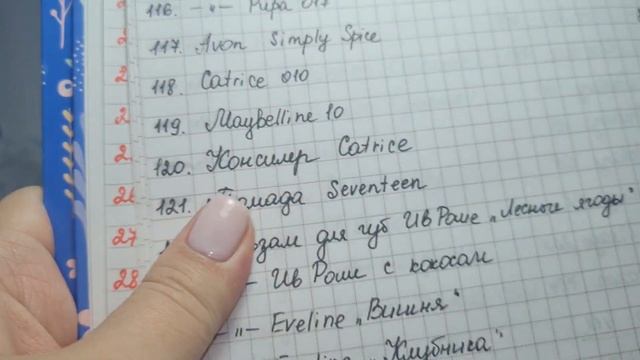 116. -"- Pupa 017
117. Avon Simply Spice
118. Catrice 010
119. Maybelline 10
120. Консилер Catrice
26 121. Помада Seventeen
27 для губ Ив Роше „Лесные ягоды"
28 - Ив Роше с кокосом
-"- Eveline „Вишня"
„Клубника"